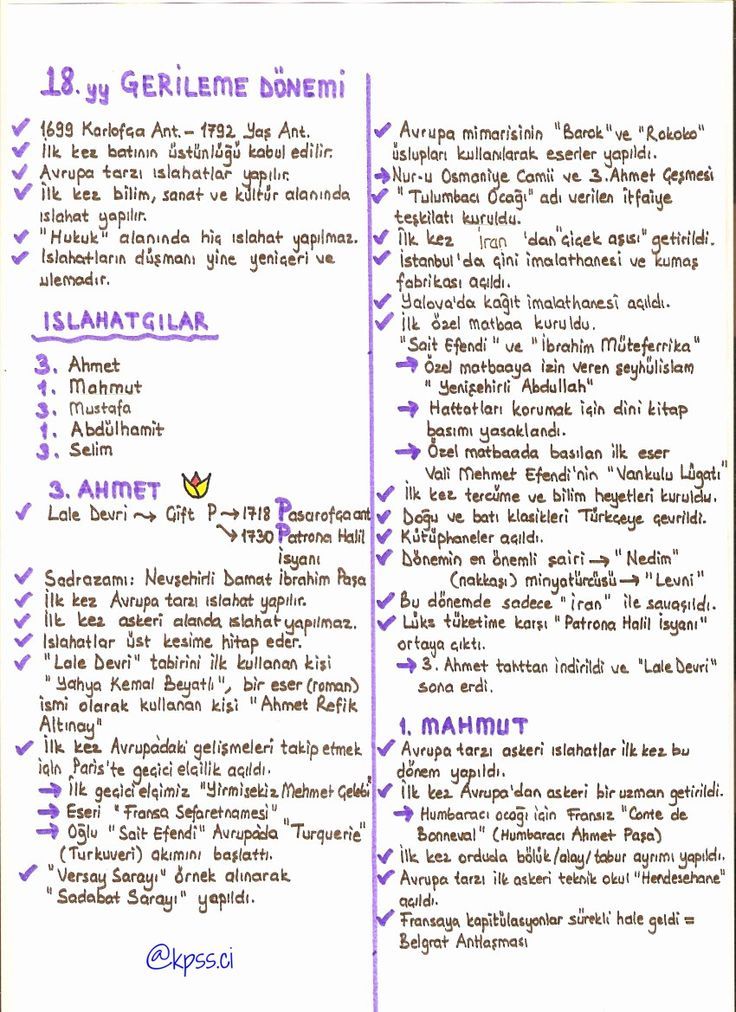 18.yy GERİLEME DÖNEMİ
1699 Karlofça Ant. - 1792 Yaş Ant.
İlk kez batının üstünlüğü kabul edilir.
Avrupa tarzı ıslahatlar yapılır.
İlk kez bilim, sanat ve kültür alanında
ıslahat yapılır.
"Hukuk" alanında hiç ıslahat yapılmaz.
Islahatların düşmanı yine yeniçeri ve
ulemadır.
ISLAHATÇILAR
3. Ahmet
1. Mahmut
3. Mustafa
1. Abdülhamit
3. Selim
3. AHMET
Lale Devri → Çift P → 1718 Pasarofça ant
→ 1730 Patrona Halil
İsyanı
Sadrazamı: Nevşehirli Damat İbrahim Paşa
İlk kez Avrupa tarzı ıslahat yapılır.
İlk kez askeri alanda ıslahat yapılmaz.
Islahatlar üst kesime hitap eder.
"Lale Devri" tabirini ilk kullanan kişi
"Yahya Kemal Beyatlı", bir eser (roman)
ismi olarak kullanan kişi "Ahmet Refik
Altınay"
İlk kez Avrupa'daki gelişmeleri takip etmek
için Paris'te geçici elçilik açıldı.
→ İlk geçici elçimiz "Yirmisekiz Mehmet Çelebi"
→ Eseri "Fransa Sefaretnamesi"
→ Oğlu "Sait Efendi" Avrupa'da "Turquerie"
(Turkuveri) akımını başlattı.
"Versay Sarayı" örnek alınarak
"Sadabat Sarayı" yapıldı.
@kpss.ci
Avrupa mimarisinin "Barok" ve "Rokoko"
üslupları kullanılarak eserler yapıldı.
→ Nur-u Osmaniye Camii ve 3. Ahmet Çeşmesi
"Tulumbacı Ocağı" adı verilen itfaiye
teşkilatı kuruldu.
İlk kez İran 'dan "çiçek aşısı" getirildi.
İstanbul'da çini imalathanesi ve kumaş
fabrikası açıldı.
Yalova'da kağıt imalathanesi açıldı.
İlk özel matbaa kuruldu.
"Sait Efendi" ve "İbrahim Müteferrika"
→ Özel matbaaya izin veren şeyhülislam
"Yenişehirli Abdullah"
→ Hattatları korumak için dini kitap
basımı yasaklandı.
→ Özel matbaada basılan ilk eser
Vali Mehmet Efendi'nin "Vankulu Lügatı"
İlk kez tercüme ve bilim heyetleri kuruldu.
Doğu ve batı klasikleri Türkçeye çevrildi.
Kütüphaneler açıldı.
Dönemin en önemli şairi → "Nedim"
(nakkaşı) minyatürcüsü → "Levni"
Bu dönemde sadece "İran" ile savaşıldı.
Lüks tüketime karşı "Patrona Halil isyanı"
ortaya çıktı.
→ 3. Ahmet tahttan indirildi ve "Lale Devri"
sona erdi.
1. MAHMUT
Avrupa tarzı askeri ıslahatlar ilk kez bu
dönem yapıldı.
İlk kez Avrupa'dan askeri bir uzman getirildi.
→ Humbaracı ocağı için Fransız "Conte de
Bonneval" (Humbaracı Ahmet Paşa)
İlk kez orduda bölük/alay/tabur ayrımı yapıldı.
Avrupa tarzı ilk askeri teknik okul "Hendesehane"
açıldı.
Fransaya kapitülasyonlar sürekli hale geldi =
Belgrat Antlaşması